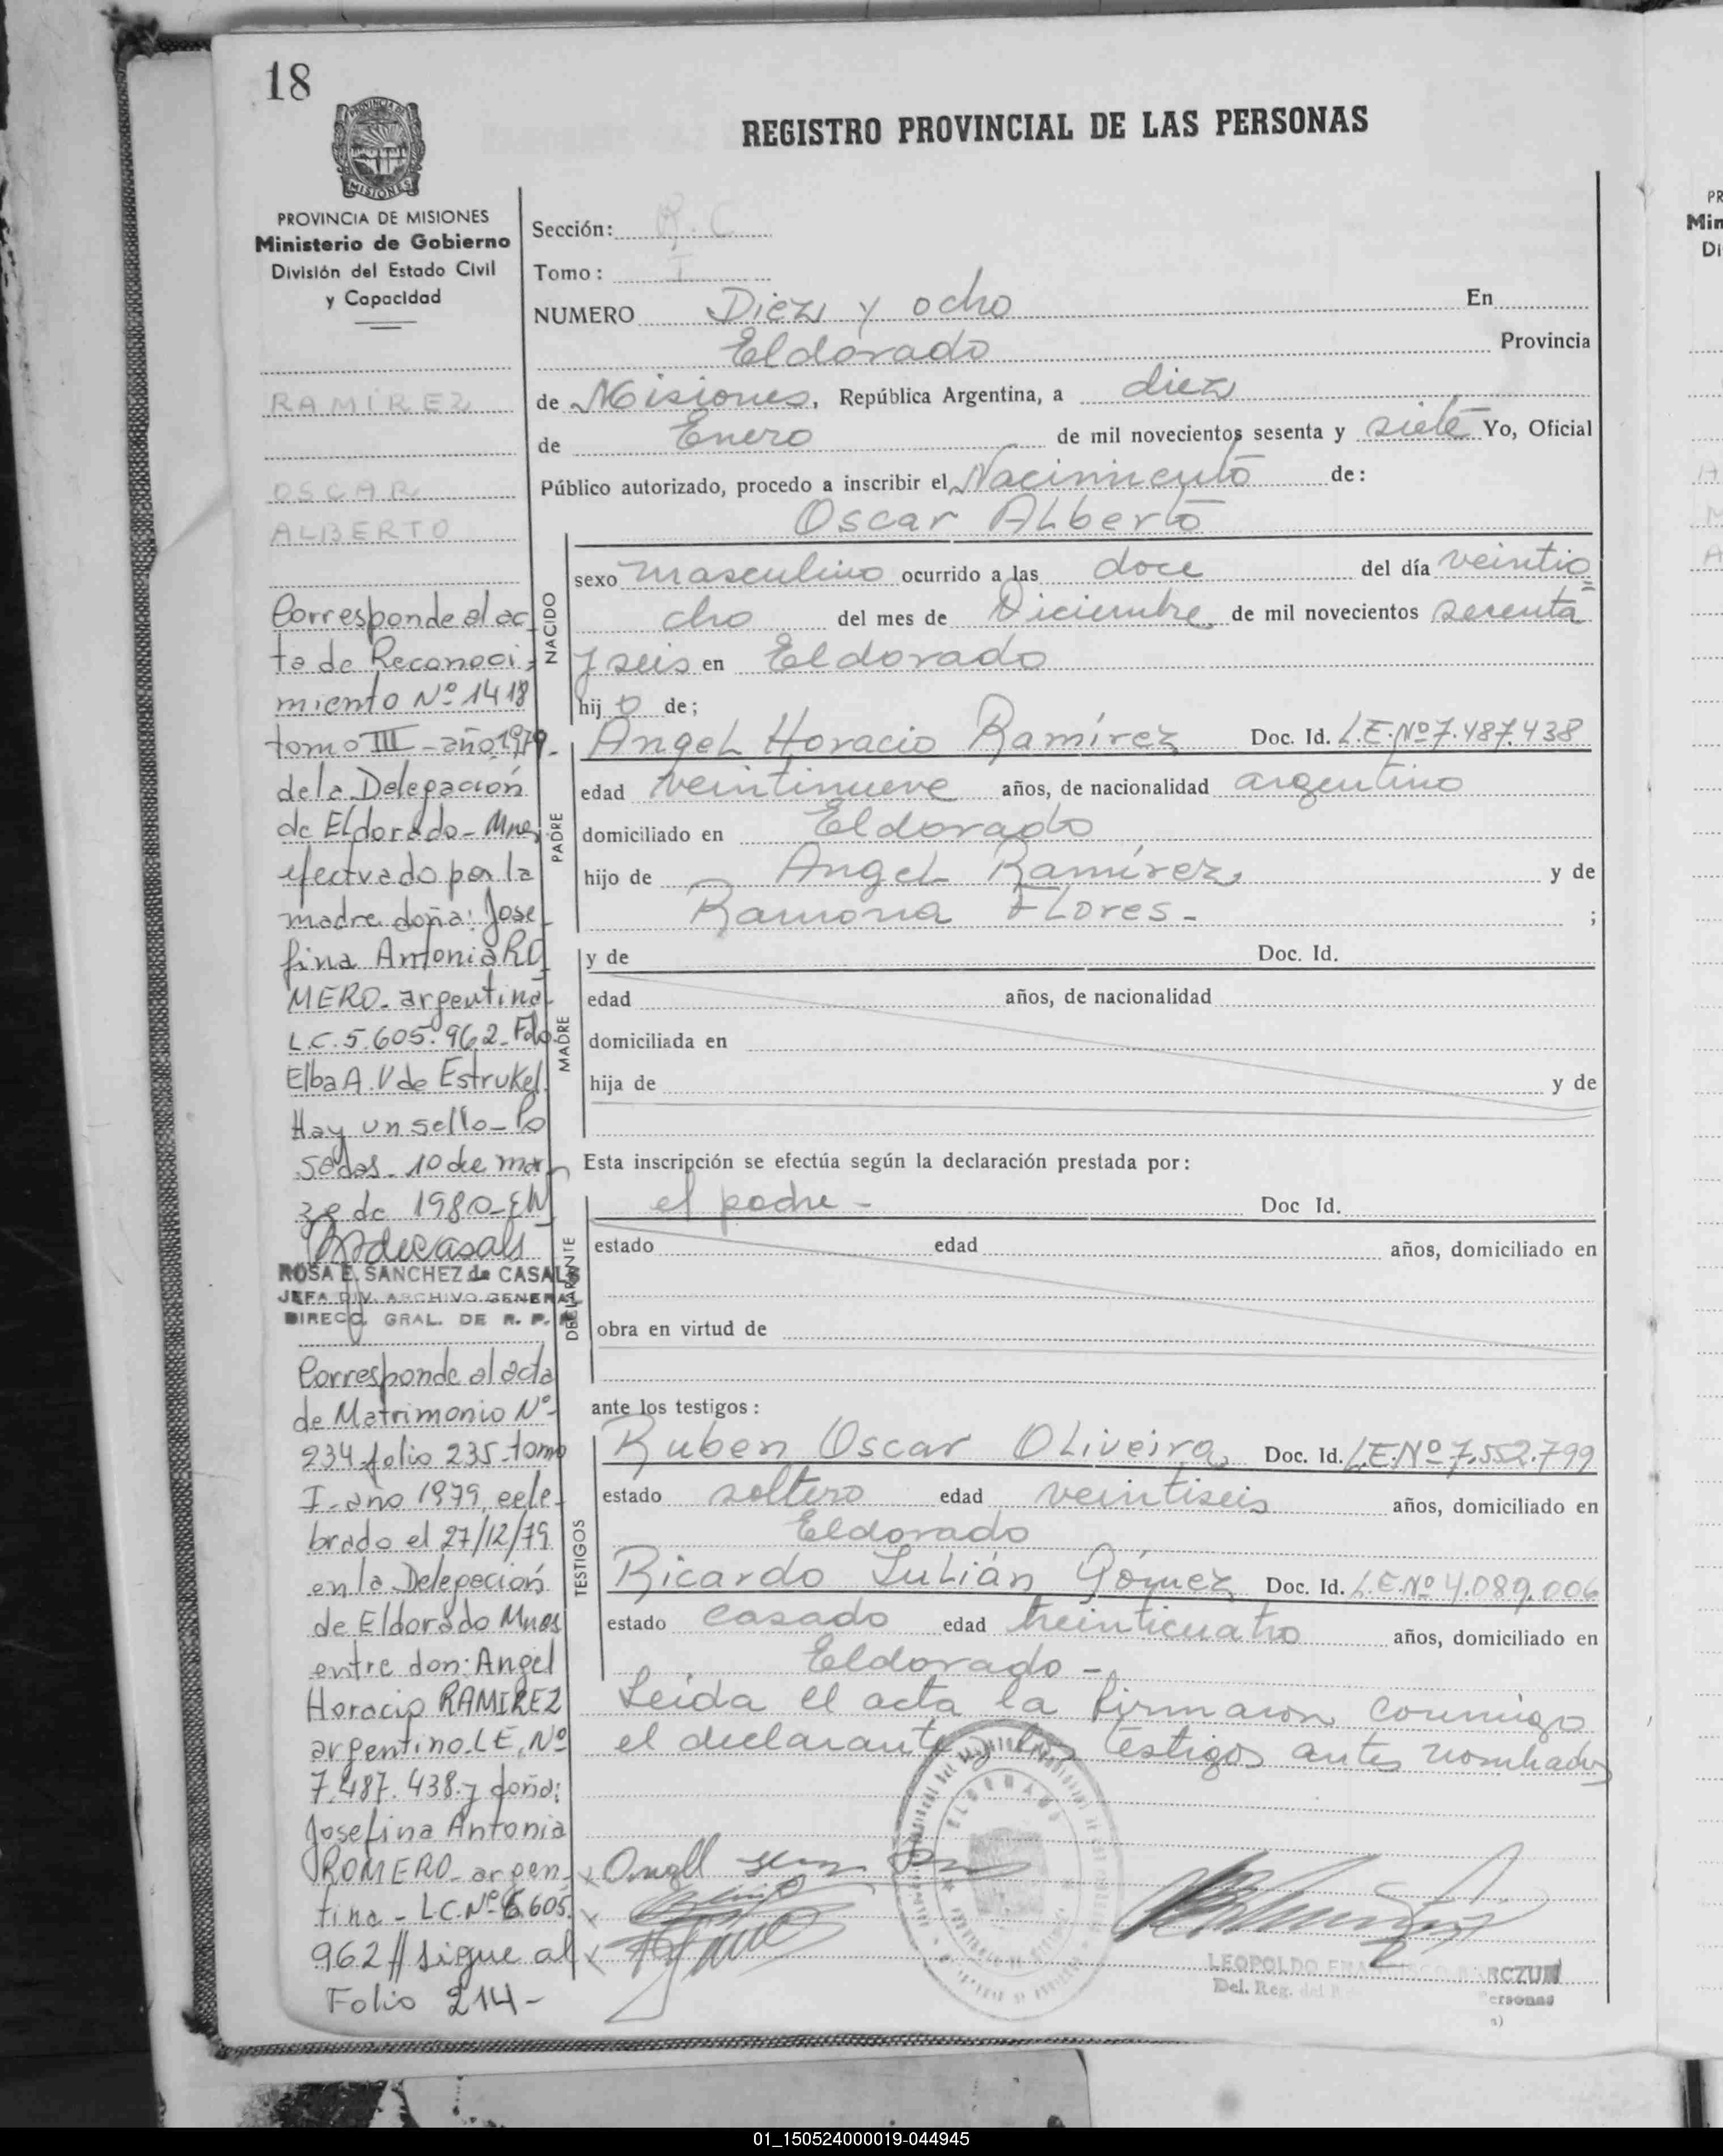 18
PROVINCIA DE
MISIONES
REGISTRO PROVINCIAL DE LAS PERSONAS
PROVINCIA DE MISIONES
Ministerio de Gobierno
División del Estado Civil
y Capacidad
RAMIREZ
OSCAR
ALBERTO
Corresponde al ac
ta de Reconoci-
miento Nº 1418
tomo III - año 1979-
de la Delegación
de Eldorado - Mnes
efectuado por la
madre doña: Jose
fina Antonia RO
MERO - argentina
L.C. 5.605.962 - Fdo.
Elba A. V de Estrukel.
Hay un sello - Po
sadas - 10 de mar
zo de 1980 - EW
ROSA E. SANCHEZ de CASALS
JEFA DIV. ARCHIVO GENERAL
DIRECC. GRAL. DE R. P.
Corresponde al acta
de Matrimonio Nº
234 folio 235 - tomo
I - año 1979, cele-
brado el 27/12/79
en la Delegación
de Eldorado Mnes
entre don: Angel
Horacio RAMIREZ
argentino L.E. Nº
7.487.438 - y doña:
Josefina Antonia
ROMERO - argen
tina - L.C. Nº 5.605.
962 // sigue al
Folio 214 -
Sección: R. C
Tomo: I
NUMERO Diez y ocho En
Eldorado Provincia
de Misiones, República Argentina, a diez
de Enero de mil novecientos sesenta y siete Yo, Oficial
Público autorizado, procedo a inscribir el Nacimiento de:
Oscar Alberto
NACIDO
sexo masculino ocurrido a las doce del día veintio=
cho del mes de Diciembre de mil novecientos sesenta
y seis en Eldorado
hij o de;
PADRE
Angel Horacio Ramírez Doc. Id. L.E. Nº 7.487.438
edad veintinueve años, de nacionalidad argentino
domiciliado en Eldorado
hijo de Angel Ramírez y de
Ramona Flores - ;
MADRE
y de Doc. Id.
edad años, de nacionalidad
domiciliada en
hija de y de
Esta inscripción se efectúa según la declaración prestada por:
DECLARANTE
el padre - Doc Id.
estado edad años, domiciliado en
obra en virtud de
ante los testigos:
TESTIGOS
Ruben Oscar Oliveira Doc. Id. L.E. Nº 7.552.799
estado soltero edad veintiseis años, domiciliado en
Eldorado
Ricardo Julián Gómez Doc. Id. L.E. Nº 4.089.006
estado casado edad treinticuatro años, domiciliado en
Eldorado -
Leida el acta la firmaron conmigo
el declarante y los testigos antes nombrados
ELDORADO
LEOPOLDO FRANCISCO
Del. Reg. del
Personas
PR
Min
Di
01_150524000019-044945